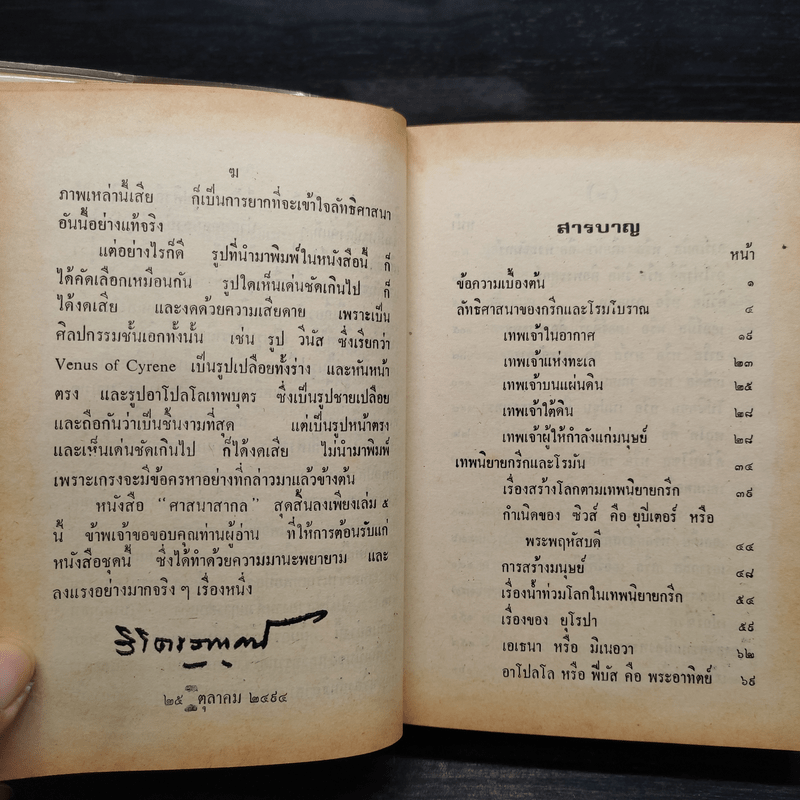 ฆ
ภาพเหล่านี้เสีย ก็เป็นการยากที่จะเข้าใจลัทธิศาสนา
อันนี้อย่างแท้จริง
แต่อย่างไรก็ดี รูปที่นำมาพิมพ์ในหนังสือนี้ ก็
ได้คัดเลือกเหมือนกัน รูปใดเห็นเด่นชัดเกินไป ก็
ได้งดเสีย และงดด้วยความเสียดาย เพราะเป็น
ศิลปกรรมชั้นเอกทั้งนั้น เช่น รูป วีนัส ซึ่งเรียกว่า
Venus of Cyrene เป็นรูปเปลือยทั้งร่าง และหันหน้า
ตรง และรูปอาโปลโลเทพบุตร ซึ่งเป็นรูปชายเปลือย
และถือกันว่าเป็นชิ้นงามที่สุด แต่เป็นรูปหน้าตรง
และเห็นเด่นชัดเกินไป ก็ได้งดเสีย ไม่นำมาพิมพ์
เพราะเกรงจะมีข้อครหาอย่างที่กล่าวมาแล้วข้างต้น
หนังสือ “ศาสนาสากล” สุดสิ้นลงเพียงเล่ม ๕
นี้ ข้าพเจ้าขอขอบคุณท่านผู้อ่าน ที่ให้การต้อนรับแก่
หนังสือชุดนี้ ซึ่งได้ทำด้วยความมานะพยายาม และ
ลงแรงอย่างมากจริง ๆ เรื่องหนึ่ง
๒๕ ตุลาคม ๒๔๙๔
สารบาญ
หน้า
ข้อความเบื้องต้น ๑
ลัทธิศาสนาของกรีกและโรมโบราณ ๔
เทพเจ้าในอากาศ ๑๙
เทพเจ้าแห่งทะเล ๒๓
เทพเจ้าบนแผ่นดิน ๒๕
เทพเจ้าใต้ดิน ๒๘
เทพเจ้าผู้ให้กำลังแก่มนุษย์ ๒๘
เทพนิยายกรีกและโรมัน ๓๔
เรื่องสร้างโลกตามเทพนิยายกรีก ๓๙
กำเนิดของ ซิวส์ คือ ยุปิเตอร์ หรือ
พระพฤหัสบดี ๔๔
การสร้างมนุษย์ ๔๘
เรื่องน้ำท่วมโลกในเทพนิยายกรีก ๕๔
เรื่องของ ยุโรปา ๕๙
เอเธนา หรือ มิเนอวา ๖๒
อาโปลโล หรือ ฟีบัส คือ พระอาทิตย์ ๖๙